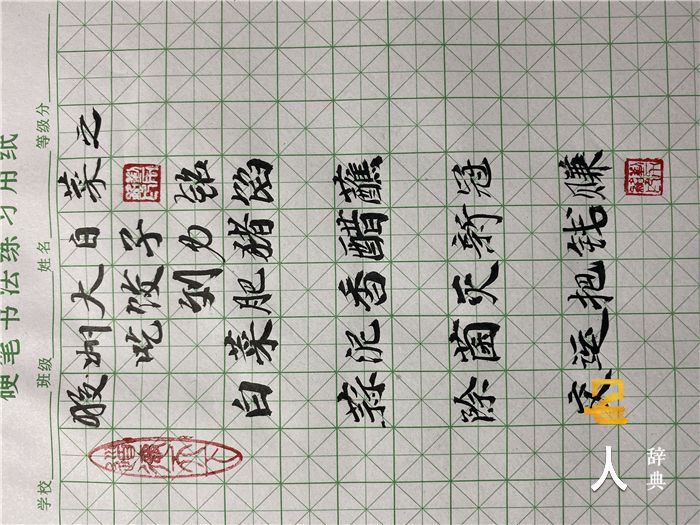 硬笔书法练习用纸
学校 班级 姓名 等级分
胶州大白菜之
吃饺子
力铭
白菜肥豬馅
蒜泥香醋蘸
除菌灭新冠
运把钱赚
人 辞典